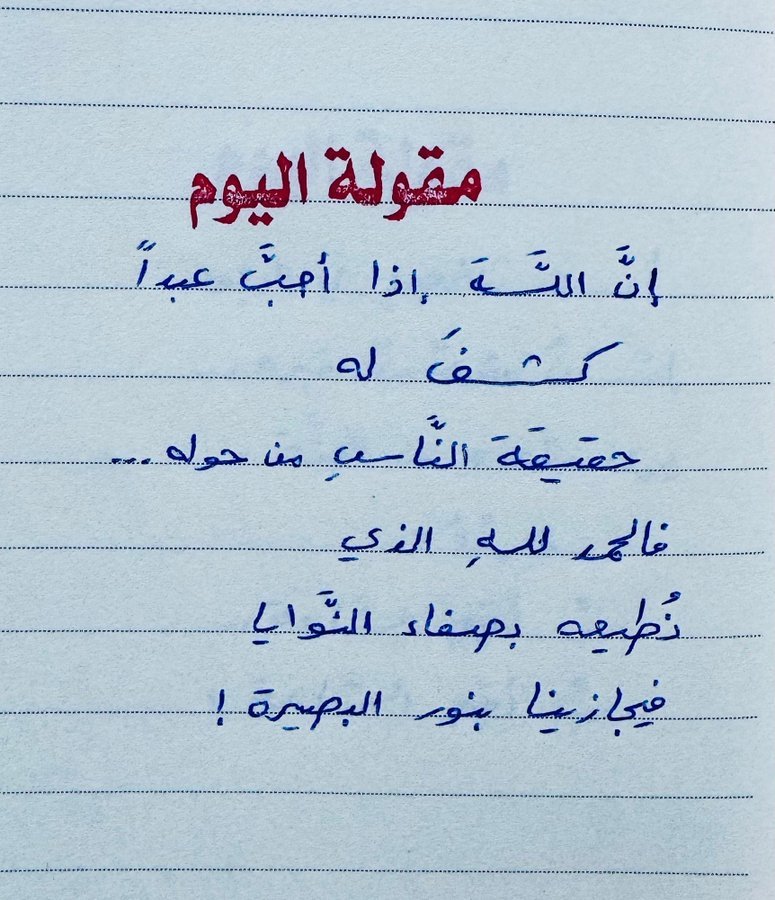 مقولة اليوم
إنَّ اللَّهَ إذا أحبَّ عبداً
كشفَ له
حقيقَةَ النَّاسِ من حوله ...
فالحمد للهِ الذي
نُطيعه بصفاء النَّوايا
فيجازينا بنور البصيرة !